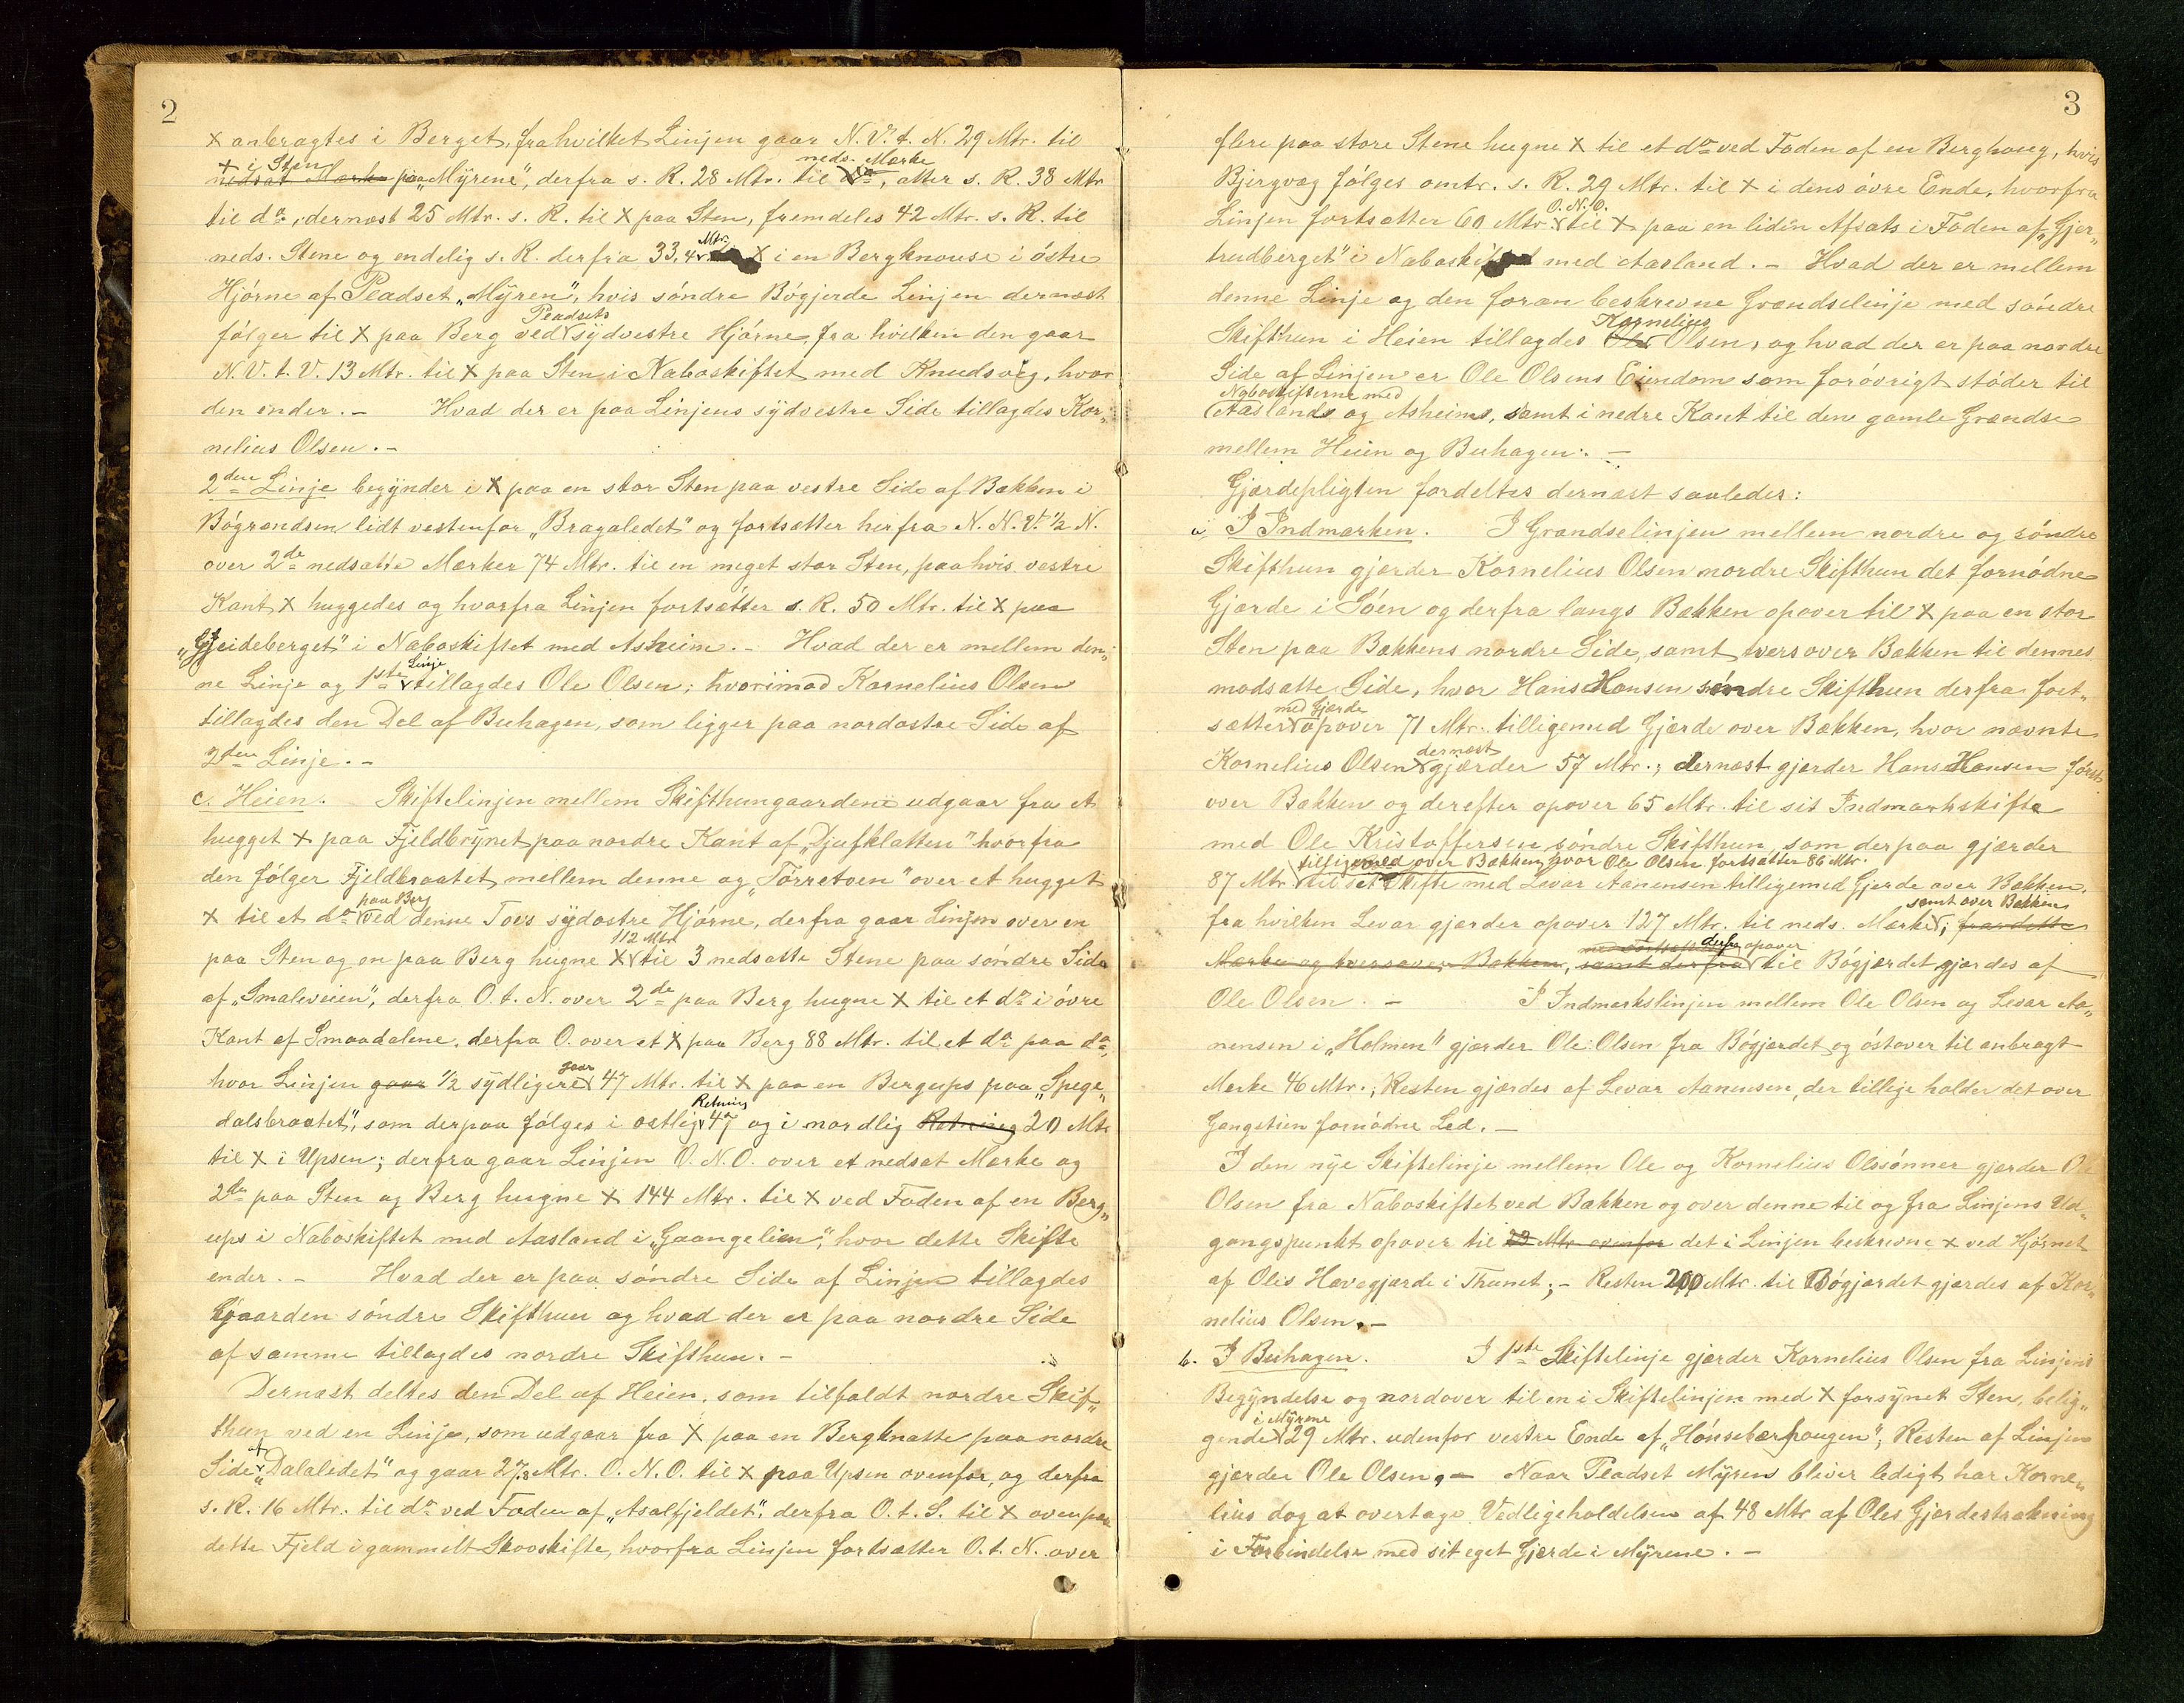 2
X anbragtes i Berget, fra hvilket Linjen gaar N. V. t. N. 29 Mtr. til
X i Sten neds. Mærke
nedsat Mærke paa „Mÿrene”, derfra s. R. 28 Mtr. til do, atter s. R. 38 Mtr
til do, dernæst 25 Mtr. s. R. til X paa Sten, fremdeles 42 Mtr. s. R. til
Mtr.
neds. Stene og endelig s. R. derfra 33,4 X i en Bergknouse i östre
Hjörne af Pladset „Mÿren”, hvis söndre Bögjerde Linjen dernæst
Pladsets
fölger til X paa Berg ved sÿdvestre Hjörne, fra hvilken den gaar
N. V. t. V. 13 Mtr. til X paa Sten i Naboskiftet med Knudsvig, hvor
den ender. – Hvad der er paa Linjens sÿdvestre Side tillagdes Kor„
nelius Olsen. –
2den Linje begÿnder i X paa en stor Sten paa vestre Side af Bækken i
Bögrændsen lidt vestenfor „Bragaledet” og fortsætter herfra N. N. V. ½ N.
over 2de nedsatte Mærker 74 Mtr. til en meget stor Sten, paa hvis vestre
Kant X huggedes og hvorfra Linjen fortsætter s. R. 50 Mtr. til X paa
„Gjeideberget” i Naboskiftet med Asheim. – Hvad der er mellem den„
Linje
ne Linje og 1ste tillagdes Ole Olsen; hvorimod Kornelius Olsen
tillagdes den Del af Buhagen, som ligger paa nordøstre Side af
2den Linje. –
c. Heien. Skiftelinjen mellem Skifthungaardene udgaar fra et
hugget X paa Fjeldbrÿnet paa nordre Kant af „Djufklatten” hvorfra
den fölger Fjeldbraatet mellem denne og „Törretoen” over et hugget
paa Berg
X til et do ved denne Toes sÿdøstre Hjörne, derfra gaar Linjen over en
112 Mtr
paa Sten og en paa Berg hugne X til 3 nedsatte Stene paa söndre Side
af „Smaleveien”, derfra O. t. N. over 2de paa Berg hugne X til et do i övre
Kant af Smaadalene, derfra O. over et X paa Berg 88 Mtr. til et do paa do,
gaar
hvor Linjen gaar ½ sÿdligere 47 Mtr. til X paa en Bergups paa „Spege„
Retning
dalsbraatet”, som derpaa fölges i østlig 47 og i nordlig Retning 20 Mtr
til X i Upsen; derfra gaar Linjen O. N. O. over et nedsat Mærke og
2de paa Sten og Berg hugne X 144 Mtr. til X ved Foden af en Berg„
ups i Naboskiftet med Aasland i „Gaangelien”, hvor dette Skifte
ender. – Hvad der er paa söndre Side af Linjen tillagdes
Gaarden söndre Skifthun og hvad der er paa nordre Side
af samme tillagdes nordre Skifthun. –
Dernæst deltes den Del af Heien, som tilfaldt nordre Skif„
thun ved en Linje, som udgaar fra X paa en Bergknatte paa nordre
af
Side „Dalaledet” og gaar 27,8 Mtr. O. N. O. til X paa Upsen ovenfor, og derfra
s. R. 16 Mtr. til do ved Foden af „Asalfjeldet”, derfra O. t. S. til X ovenpaa
dette Fjeld i gammelt Skovskifte, hvorfra Linjen fortsætter O. t. N. over
3
flere paa store Stene hugne X til et do ved Foden af en Berghaug, hvis
Bjergvæg fölges omtr. s. R. 29 Mtr. til X i dens övre Ende, hvorfra
O. N. O.
Linjen fortsætter 60 Mtr. til X paa en liden Afsats i Foden af „Gjer„
trudberget” i Naboskiftet med Aasland. – Hvad der er mellem
denne Linje og den foran beskrevne Grændselinje med söndre
Kornelius
Skifthun i Heien tillagdes Ole Olsen, og hvad der er paa nordre
Side af Linjen er Ole Olsens Eiendom som forövrigt stöder til
Naboskifterne med
Aaslands og Asheims, samt i nedre Kant til den gamle Grændse
mellem Heien og Buhagen. –
Gjærdepligten fordeltes dernæst saaledes:
a, I Indmarken. I Grændselinjen mellem nordre og söndre
Skifthun gjærder Kornelius Olsen nordre Skifthun det fornödne
Gjærde i Söen og derfra langs Bækken opover til X paa en stor
Sten paa Bækkens nordre Side, samt tversover Bækken til dennes
modsatte Side, hvor Hans Hansen söndre Skifthun derfra fort„
med Gjærde
sætter opover 71 Mtr. tilligemed Gjærde over Bækken, hvor nævnte
dernæst
Kornelius Olsen gjærder 57 Mtr.; dernæst gjærder Hans Hansen först
over Bækken og derefter opover 65 Mtr. til sit Indmarkskifte
med Ole Kristoffersen söndre Skifthun, som derpaa gjærder
tilligemed over Bækken, hvor Ole Olsen fortsætter 86 Mtr.
87 Mtr. til det Skifte med Levar Aanensen tilligemed Gjerde over Bækken,
samt over Bækken
fra hvilken Levar gjærder opover 127 Mtr. til neds. Mærke; fra dette
derfra opover
Mærke og tversover Bækken, samt derfra til Bögjærdet gjærdes af
Ole Olsen. – I Indmarkslinjen mellem Ole Olsen og Levar Aa„
nensen i „Holmen” gjærder Ole Olsen fra Bögjærdet og östover til anbragt
Mærke 46 Mtr.; Resten gjærdes af Levar Aanensen, der tillige holder det over
Gangstien fornödne Led. –
I den nÿe Skiftelinje mellem Ole og Kornelius Olssönner gjærder Ole
Olsen fra Naboskiftet ved Bækken og over denne til og fra Linjens Ud„
gangspunkt opover til 29 Mtr. ovenfor det i Linjen beskrevne X ved Hjörnet
af Oles Havegjærde i Thunet; – Resten 200 Mtr. til Bögjærdet gjærdes af Kor„
nelius Olsen. –
b. I Buhagen. I 1ste Skiftelinje gjærder Kornelius Olsen fra Linjens
Begÿndelse og nordover til en i Skiftelinjen med X forsÿnet Sten, belig„
i Mÿrene
gende 29 Mtr. udenfor vestre Ende af „Hönsebærhaugen”, Resten af Linjen
gjærder Ole Olsen, – Naar Pladset Mÿren bliver ledigt har Korne„
lius dog at overtage Vedligeholdelsen af 48 Mtr af Oles Gjærdestrækning
i Forbindelse med sit eget Gjærde i Mÿrene. –